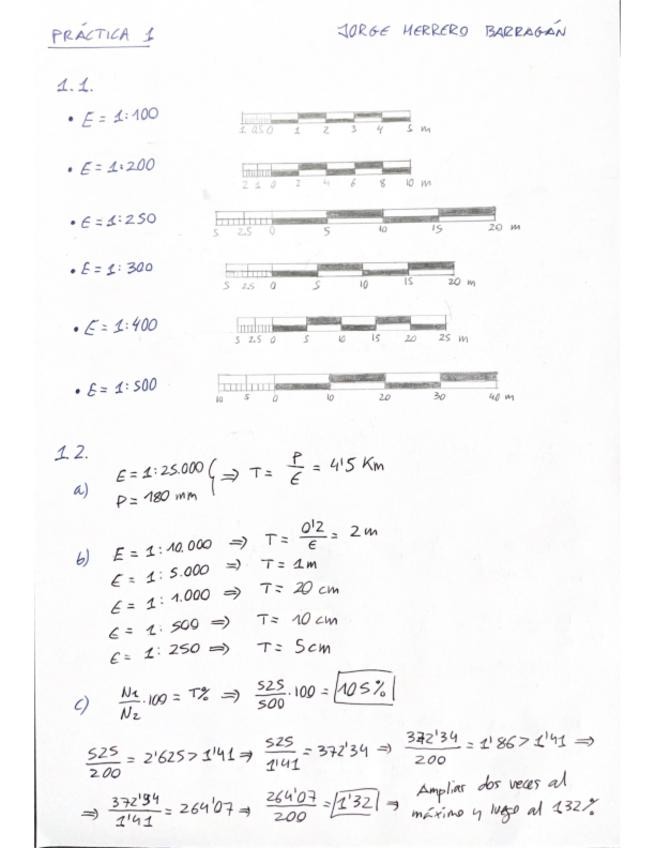 PRÁCTICA 1 JORGE HERRERO BARRAGÁN
1.1.
• E = 1:100
1 0.5 0 1 2 3 4 5 m
• E = 1:200
2 1 0 2 4 6 8 10 m
• E = 1:250
5 2.5 0 5 10 15 20 m
• E = 1:300
5 2.5 0 5 10 15 20 m
• E = 1:400
5 2.5 0 5 10 15 20 25 m
• E = 1:500
10 5 0 10 20 30 40 m
1.2.
a) E = 1:25.000
P = 180 mm } ⇒ T = P/E = 4'5 Km
b) E = 1:10.000 ⇒ T = 0'2/E = 2 m
E = 1:5.000 ⇒ T = 1m
E = 1:1.000 ⇒ T = 20 cm
E = 1:500 ⇒ T = 10 cm
E = 1:250 ⇒ T = 5cm
c) N1/N2 · 100 = T% ⇒ 525/500 · 100 = 105%
525/200 = 2'625 > 1'41 ⇒ 525/1'41 = 372'34 ⇒ 372'34/200 = 1'86 > 1'41 ⇒
⇒ 372'34/1'41 = 264'07 ⇒ 264'07/200 = 1'32 ⇒ Amplias dos veces al
máximo y luego al 132%